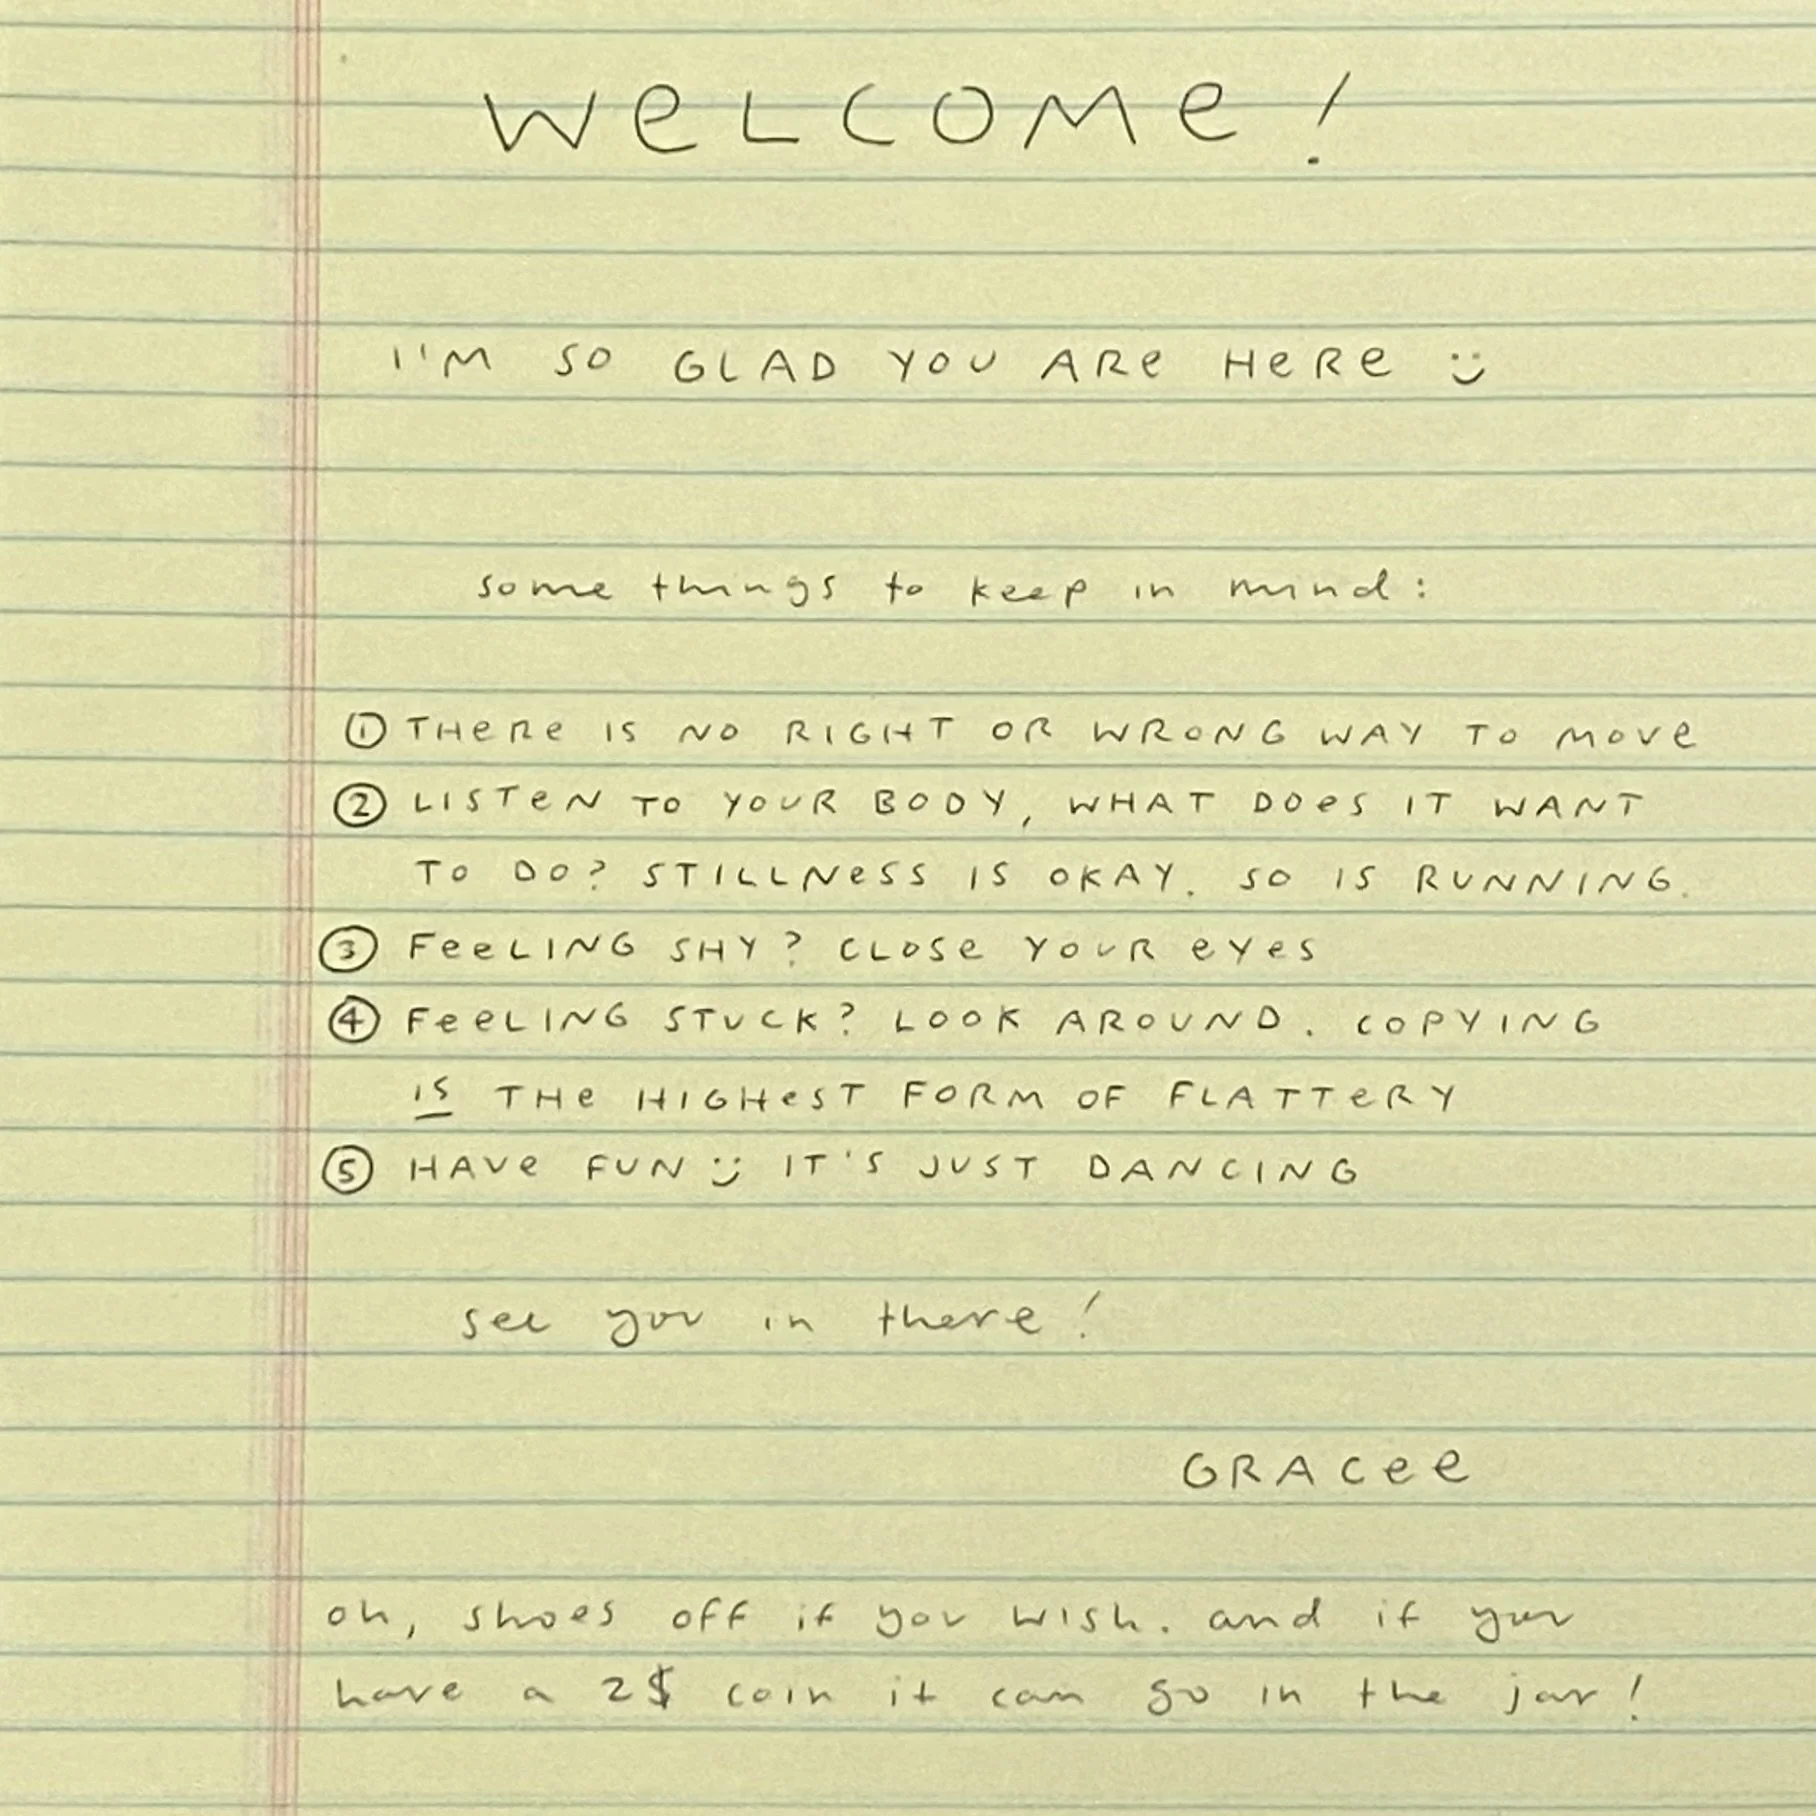 WeLCOMe!
I'M SO GLAD YOU ARe HeRe :)
some things to keep in mind:
① THeRe IS NO RIGHT OR WRONG WAY TO MOVe
② LISTeN TO YOUR BODY, WHAT DOeS IT WANT
TO DO? STILLNeSS IS OKAY. SO IS RUNNING.
③ FeeLING SHY? CLOSe YOUR eYeS
④ FeeLING STUCK? LOOK AROUND. COPYING
IS THe HIGHeST FORM OF FLATTeRY
⑤ HAVe FUN :) IT'S JUST DANCING
see you in there!
GRACee
oh, shoes off if you wish. and if you
have a 2$ coin it can go in the jar!